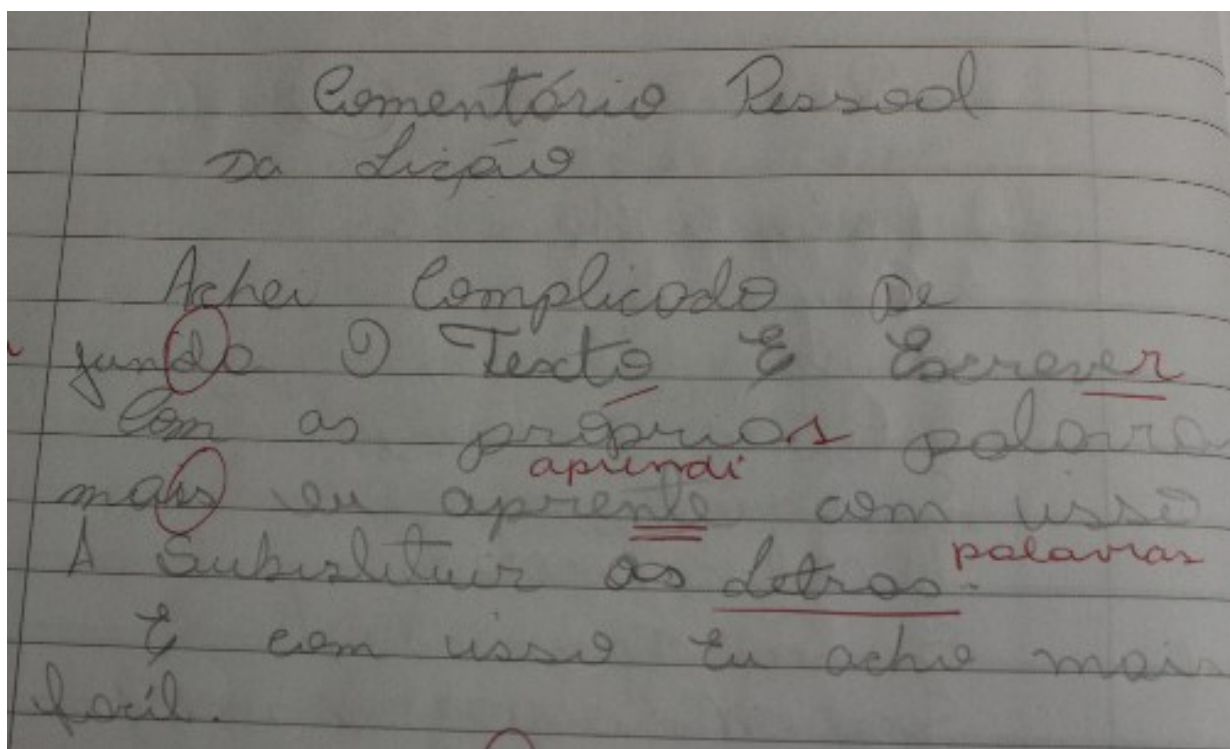 Comentário Pessoal
Da Lição
Achei Complicado De
jundo O Texto E Escrever
Com as próprios palavra
aprendi
mais eu aprente com isso
palavras
A Subistituir as Letras.
E com isso Eu acho mais
facíl.